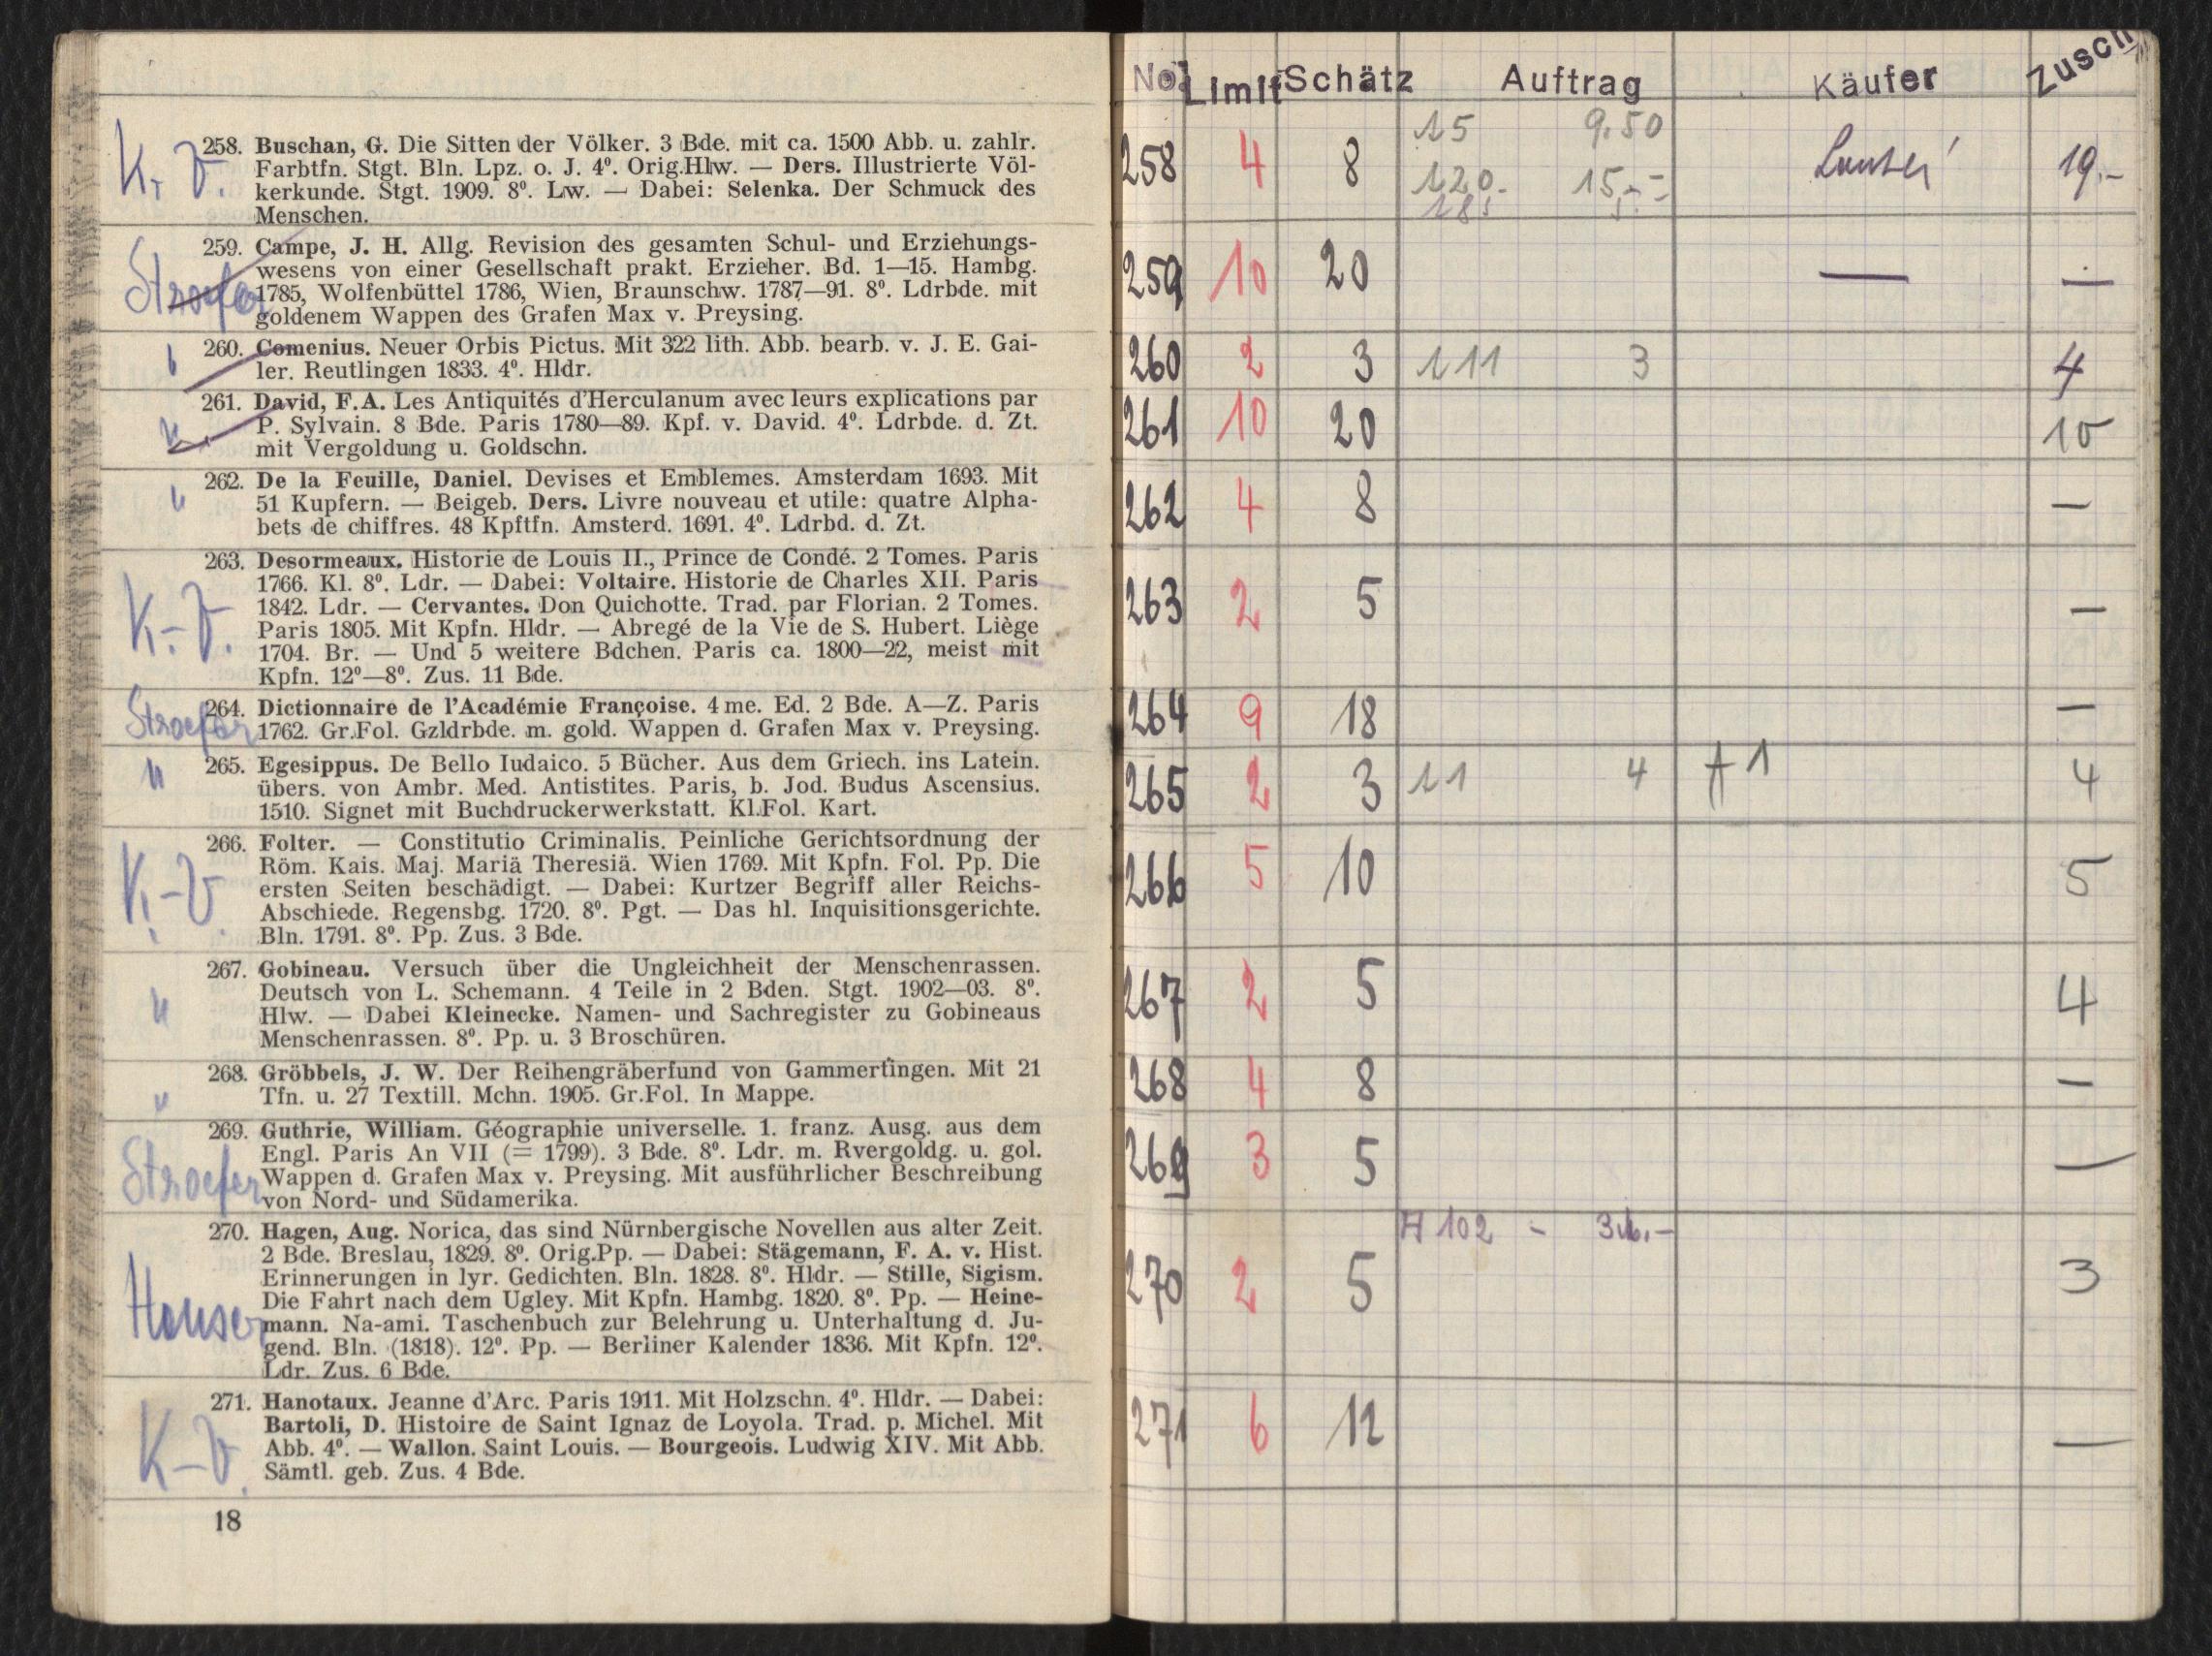 K. V.
258. Buschan, G. Die Sitten der Völker. 3 Bde. mit ca. 1500 Abb. u. zahlr.
Farbtfn. Stgt. Bln. Lpz. o. J. 4°. Orig.Hlw. — Ders. Illustrierte Völ-
kerkunde. Stgt. 1909. 8°. Lw. — Dabei: Selenka. Der Schmuck des
Menschen.
Stroefer
259. Campe, J. H. Allg. Revision des gesamten Schul- und Erziehungs-
wesens von einer Gesellschaft prakt. Erzieher. Bd. 1—15. Hambg.
1785, Wolfenbüttel 1786, Wien, Braunschw. 1787—91. 8°. Ldrbde. mit
goldenem Wappen des Grafen Max v. Preysing.
"
260. Comenius. Neuer Orbis Pictus. Mit 322 lith. Abb. bearb. v. J. E. Gai-
ler. Reutlingen 1833. 4°. Hldr.
"
261. David, F.A. Les Antiquités d'Herculanum avec leurs explications par
P. Sylvain. 8 Bde. Paris 1780—89. Kpf. v. David. 4°. Ldrbde. d. Zt.
mit Vergoldung u. Goldschn.
"
262. De la Feuille, Daniel. Devises et Emblemes. Amsterdam 1693. Mit
51 Kupfern. — Beigeb. Ders. Livre nouveau et utile: quatre Alpha-
bets de chiffres. 48 Kpftfn. Amsterd. 1691. 4°. Ldrbd. d. Zt.
K.-V.
263. Desormeaux. Historie de Louis II., Prince de Condé. 2 Tomes. Paris
1766. Kl. 8°. Ldr. — Dabei: Voltaire. Historie de Charles XII. Paris
1842. Ldr. — Cervantes. Don Quichotte. Trad. par Florian. 2 Tomes.
Paris 1805. Mit Kpfn. Hldr. — Abregé de la Vie de S. Hubert. Liège
1704. Br. — Und 5 weitere Bdchen. Paris ca. 1800—22, meist mit
Kpfn. 12°—8°. Zus. 11 Bde.
Stroefer
264. Dictionnaire de l'Académie Françoise. 4 me. Ed. 2 Bde. A—Z. Paris
1762. Gr.Fol. Gzldrbde. m. gold. Wappen d. Grafen Max v. Preysing.
"
265. Egesippus. De Bello Iudaico. 5 Bücher. Aus dem Griech. ins Latein.
übers. von Ambr. Med. Antistites. Paris, b. Jod. Budus Ascensius.
1510. Signet mit Buchdruckerwerkstatt. Kl.Fol. Kart.
K.-V.
266. Folter. — Constitutio Criminalis. Peinliche Gerichtsordnung der
Röm. Kais. Maj. Mariä Theresiä. Wien 1769. Mit Kpfn. Fol. Pp. Die
ersten Seiten beschädigt. — Dabei: Kurtzer Begriff aller Reichs-
Abschiede. Regensbg. 1720. 8°. Pgt. — Das hl. Inquisitionsgerichte.
Bln. 1791. 8°. Pp. Zus. 3 Bde.
"
267. Gobineau. Versuch über die Ungleichheit der Menschenrassen.
Deutsch von L. Schemann. 4 Teile in 2 Bden. Stgt. 1902—03. 8°.
Hlw. — Dabei Kleinecke. Namen- und Sachregister zu Gobineaus
Menschenrassen. 8°. Pp. u. 3 Broschüren.
"
268. Gröbbels, J. W. Der Reihengräberfund von Gammertingen. Mit 21
Tfn. u. 27 Textill. Mchn. 1905. Gr.Fol. In Mappe.
Stroefer
269. Guthrie, William. Géographie universelle. 1. franz. Ausg. aus dem
Engl. Paris An VII (= 1799). 3 Bde. 8°. Ldr. m. Rvergoldg. u. gol.
Wappen d. Grafen Max v. Preysing. Mit ausführlicher Beschreibung
von Nord- und Südamerika.
Hauser
270. Hagen, Aug. Norica, das sind Nürnbergische Novellen aus alter Zeit.
2 Bde. Breslau, 1829. 8°. Orig.Pp. — Dabei: Stägemann, F. A. v. Hist.
Erinnerungen in lyr. Gedichten. Bln. 1828. 8°. Hldr. — Stille, Sigism.
Die Fahrt nach dem Ugley. Mit Kpfn. Hambg. 1820. 8°. Pp. — Heine-
mann. Na-ami. Taschenbuch zur Belehrung u. Unterhaltung d. Ju-
gend. Bln. (1818). 12°. Pp. — Berliner Kalender 1836. Mit Kpfn. 12°.
Ldr. Zus. 6 Bde.
K-V.
271. Hanotaux. Jeanne d'Arc. Paris 1911. Mit Holzschn. 4°. Hldr. — Dabei:
Bartoli, D. Histoire de Saint Ignaz de Loyola. Trad. p. Michel. Mit
Abb. 4°. — Wallon. Saint Louis. — Bourgeois. Ludwig XIV. Mit Abb.
Sämtl. geb. Zus. 4 Bde.
18
No. Limit Schätz Auftrag Käufer Zusch
15 9.50
258 4 8 120.- 15.-- 19.-
259 10 20 — —
260 2 3 111 3 4
261 10 20 10
262 4 8 —
263 2 5 —
264 9 18 —
265 2 3 11 4 A 1 4
266 5 10 5
267 2 5 4
268 4 8 —
269 3 5 —
A 102 -
270 2 5 3
271 6 12 —